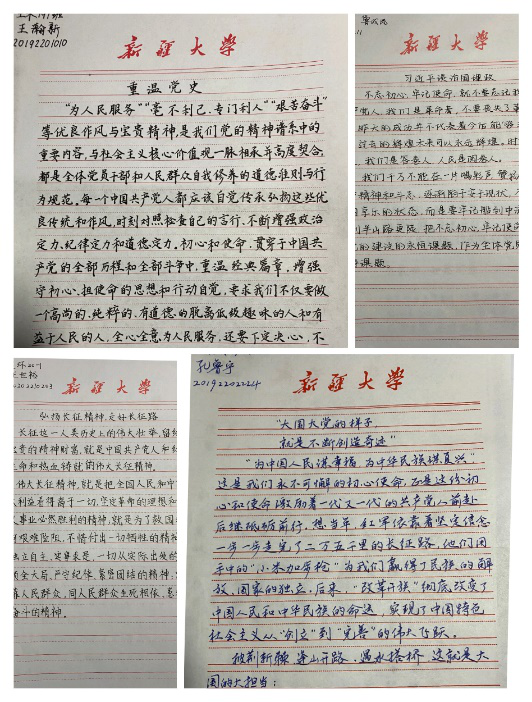 王瀚新
20192201010
新疆大学
重温党史
“为人民服务”“毫不利己、专门利人”“艰苦奋斗”
等优良作风与宝贵精神,是我们党的精神谱系中的
重要内容,与社会主义核心价值观一脉相承并高度契合,
都是全体党员干部和人民群众自我修养的道德准则与行
为规范。每一个中国共产党人都应该自觉传承弘扬这些优
良传统和作风,时刻对照检查自己的言行,不断增强政治
定力、纪律定力和道德定力。初心和使命,贯穿于中国共
产党的全部历程和全部斗争中,重温经典篇章,增强
守初心、担使命的思想和行动自觉,要求我们不仅要做
一个高尚的、纯粹的、有道德的、脱离低级趣味的人和有
益于人民的人,全心全意为人民服务,还要下定决心,不
新疆大学
习近平谈治国理政
不忘初心,牢记使命,就不要忘记我
产党人,我们是革命者,不要丧失了革
昨天的成功并不代表着今后能够
过去的辉煌并不意味着未来可以永远辉煌,时
我们是答卷人,人民是阅卷人。
我们千万不能在一片喝彩声、赞扬
精神和斗志,逐渐陷于安于现状、
享乐的状态,而是要牢记船到中流
到半山路更陡,把不忘初心、牢记使命
的建设的永恒课题,作为全体党员
课题。
新疆大学
弘扬长征精神,走好长征路
长征这一人类历史上的伟大壮举,留给
宝贵的精神财富,就是中国共产党人和红
命和热血铸就的伟大长征精神。
伟大长征精神,就是把全国人民和中
利益看得高于一切,坚定革命的理想和
事业必然胜利的精神,就是为了救国
艰难险阻,不惜付出一切牺牲的精
独立自主、实事求是,一切从实际出发的
顾全大局、严守纪律、紧密团结的精神;
靠人民群众,同人民群众生死相依、患
奋斗的精神。
孔睿宇
20192202224
新疆大学
“大国大党的样子
就是不断创造奇迹”
“为中国人民谋幸福,为中华民族谋复兴”
这是我们永不可懈的初心使命,正是这份初
心和使命激励着一代又一代的共产党人前赴
后继砥砺前行。想当年,红军依靠着坚定信念
一步一步走完了二万五千里的长征路,他们用
手中的“小米加步枪”为我们赢得了民族的解
放、国家的独立,后来,“改革开放”彻底改变了
中国人民和中华民族的命运,实现了中国特色
社会主义从“创立”到“完善”的伟大飞跃。
披荆斩棘,逢山开路,遇水搭桥,这就是大
国的大担当;